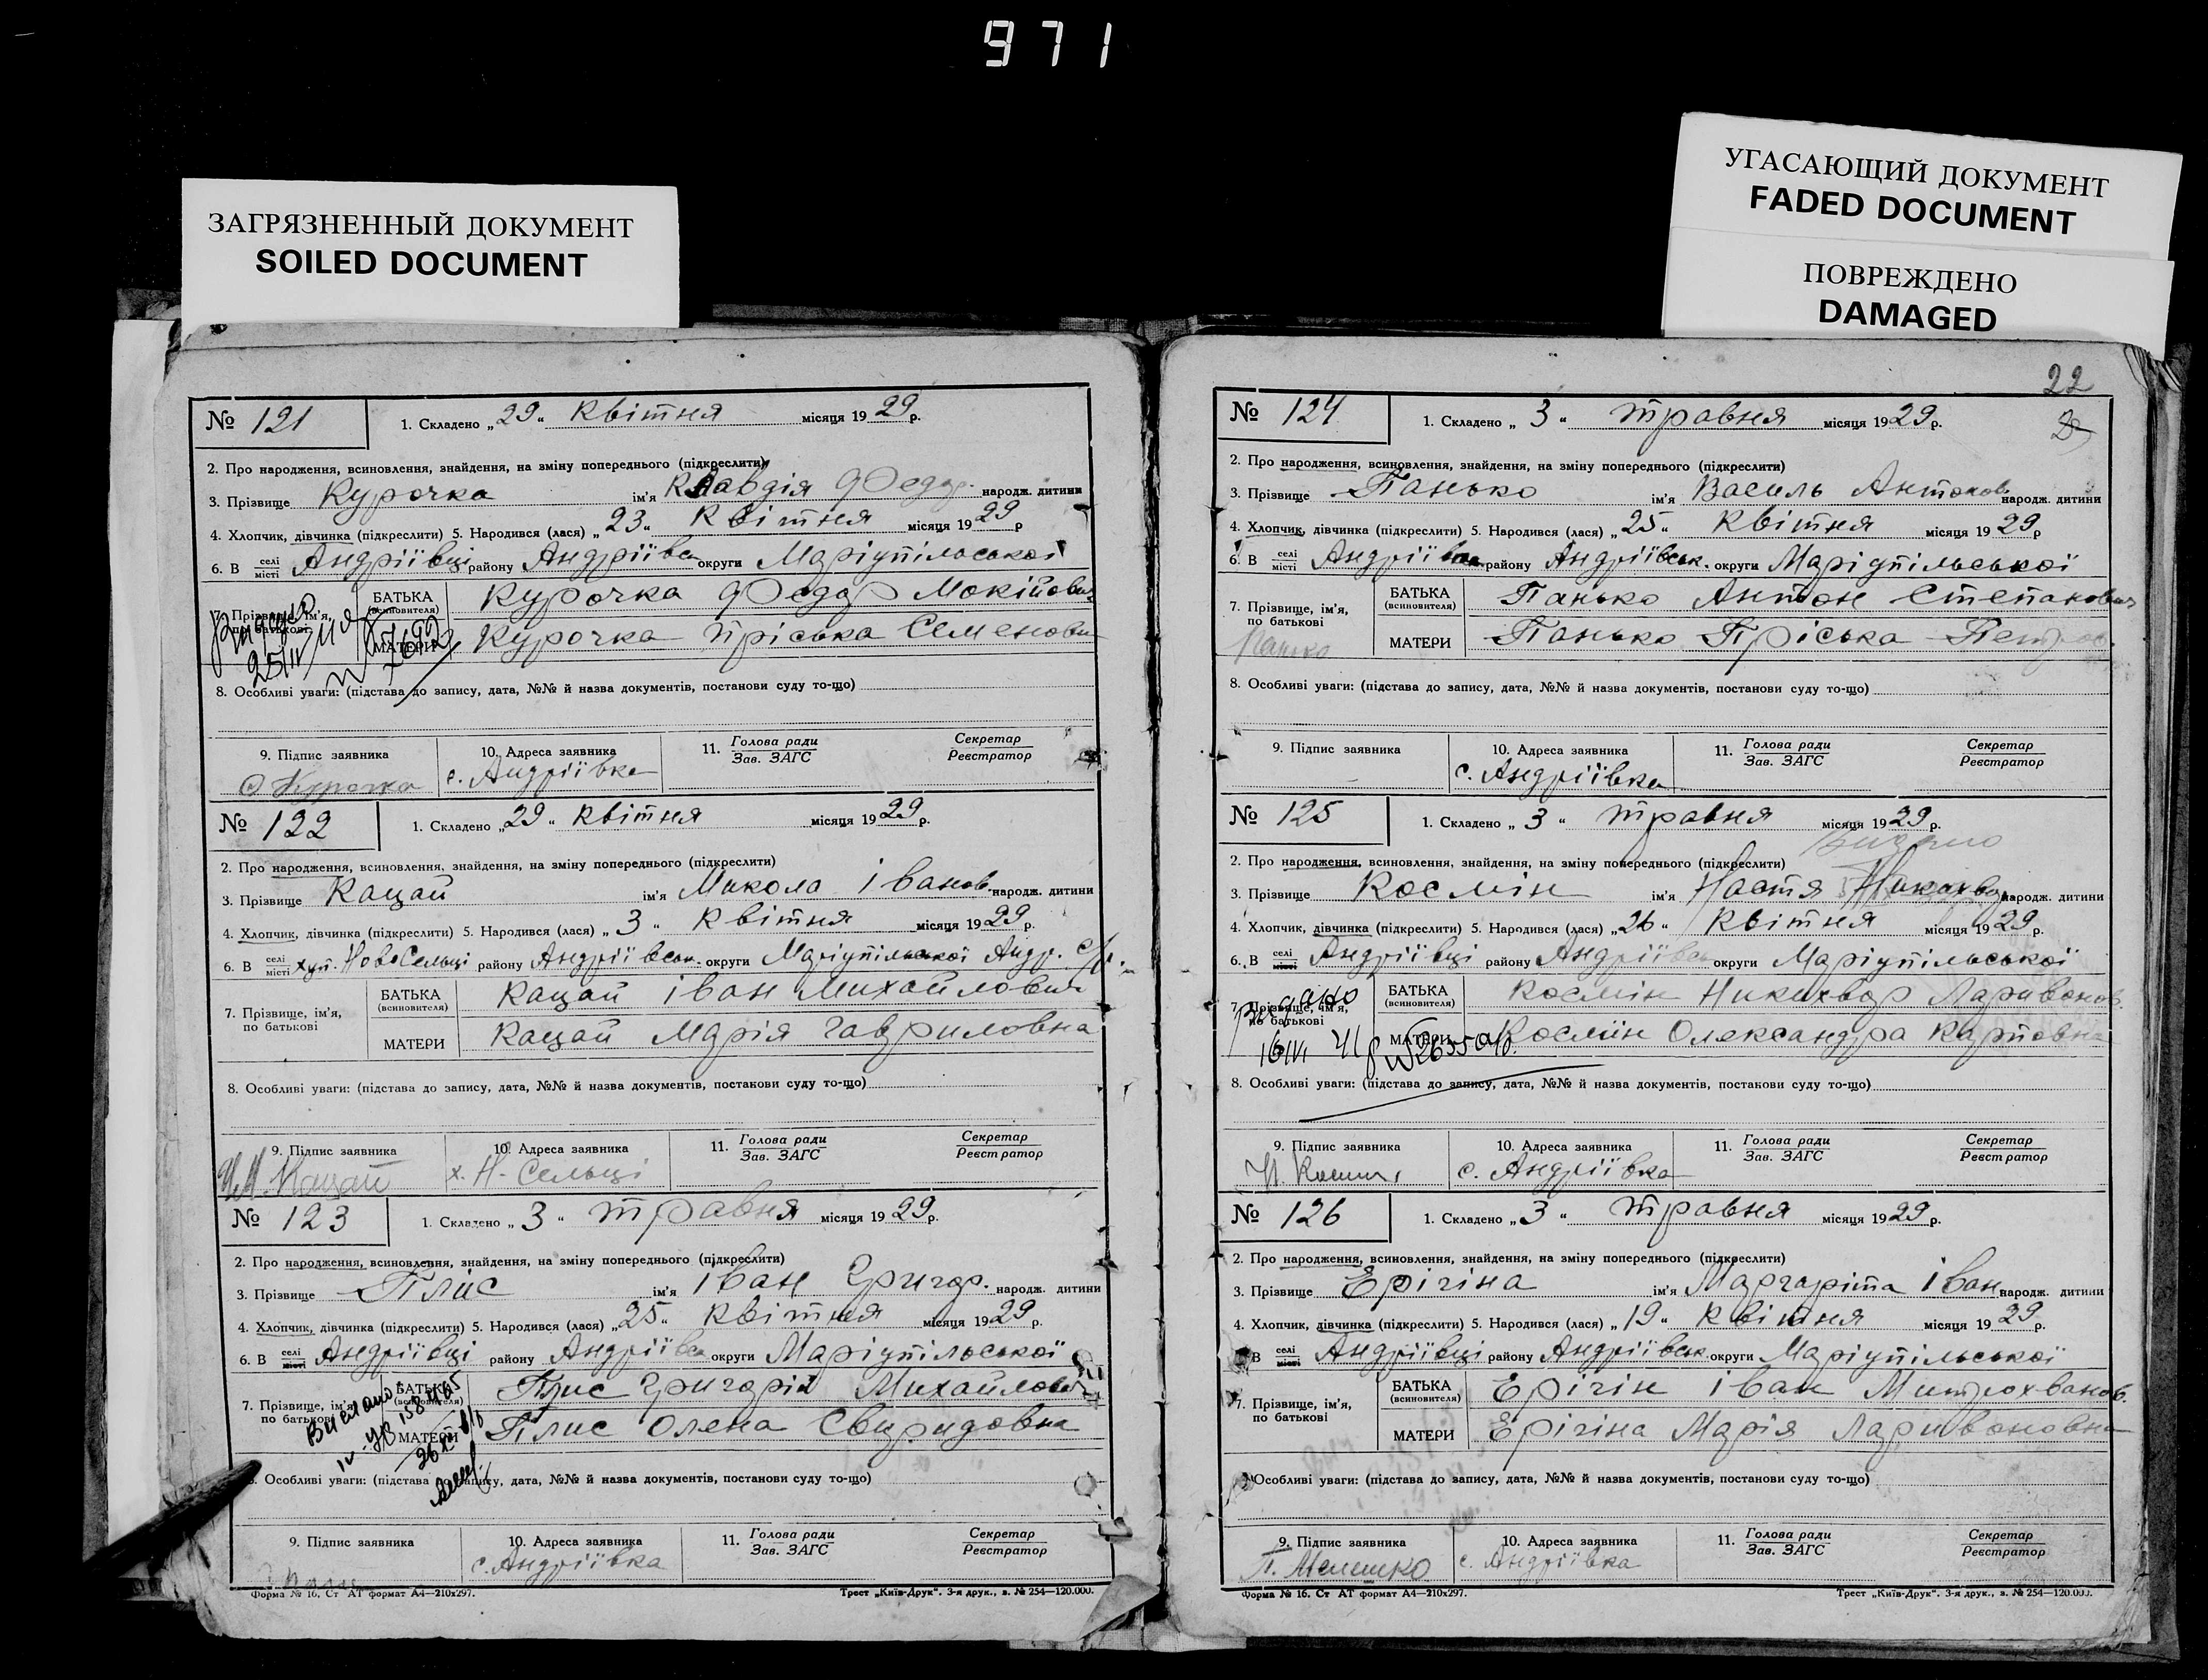 971
ЗАГРЯЗНЕННЫЙ ДОКУМЕНТ
SOILED DOCUMENT
УГАСАЮЩИЙ ДОКУМЕНТ
FADED DOCUMENT
ПОВРЕЖДЕНО
DAMAGED
№ 121 1. Складено „29“ Квітня місяця 1929 р.
2. Про народження, всиновлення, знайдення, на зміну попереднього (підкреслити)
3. Прізвище Курочка ім'я Клавдія Федор. народж. дитини
4. Хлопчик, дівчинка (підкреслити) 5. Народився (лася) „23“ Квітня місяця 1929 р
6. В селі місті Андріївці району Андріївсь округи Маріупільської
7. Прізвище, ім'я, по батькові БАТЬКА (всиновителя) Курочка Федор Мокійович
МАТЕРИ Курочка Пріська Семеновн
25/IV
8. Особливі уваги: (підстава до запису, дата, №№ й назва документів, постанови суду то-що)
9. Підпис заявника 10. Адреса заявника 11. Голова ради Зав. ЗАГС Секретар Реєстратор
Курочка с. Андріївка
№ 122 1. Складено „29“ Квітня місяця 1929 р.
2. Про народження, всиновлення, знайдення, на зміну попереднього (підкреслити)
3. Прізвище Кацай ім'я Микола Іванов. народж. дитини
4. Хлопчик, дівчинка (підкреслити) 5. Народився (лася) „3“ Квітня місяця 1929 р.
6. В селі місті хут. НовоСельці району Андріївськ. округи Маріупільської Андр. с/р.
7. Прізвище, ім'я, по батькові БАТЬКА (всиновителя) Кацай Іван Михайлович
МАТЕРИ Кацай Марія Гавриловна
8. Особливі уваги: (підстава до запису, дата, №№ й назва документів, постанови суду то-що)
9. Підпис заявника 10. Адреса заявника 11. Голова ради Зав. ЗАГС Секретар Реєстратор
Кацай х. Н-Сельці
№ 123 1. Складено „3“ травня місяця 1929 р.
2. Про народження, всиновлення, знайдення, на зміну попереднього (підкреслити)
3. Прізвище Пліс ім'я Іван Григор. народж. дитини
4. Хлопчик, дівчинка (підкреслити) 5. Народився (лася) „25“ Квітня місяця 1929 р.
6. В селі місті Андріївці району Андріївсь округи Маріупільської
7. Прізвище, ім'я, по батькові БАТЬКА (всиновителя) Плис Григорій Михайлович
МАТЕРИ Плис Олена Свиридовна
8. Особливі уваги: (підстава до запису, дата, №№ й назва документів, постанови суду то-що)
9. Підпис заявника 10. Адреса заявника 11. Голова ради Зав. ЗАГС Секретар Реєстратор
с. Андріївка
Форма № 16. Ст АТ формат А4—210х297. Трест „Київ-Друк“. 3-я друк., з. № 254—120.000.
22
№ 124 1. Складено „3“ травня місяця 1929 р.
2. Про народження, всиновлення, знайдення, на зміну попереднього (підкреслити)
3. Прізвище Панько ім'я Василь Антонов. народж. дитини
4. Хлопчик, дівчинка (підкреслити) 5. Народився (лася) „25“ Квітня місяця 1929 р
6. В селі місті району Андріївськ. округи Маріупільської
7. Прізвище, ім'я, по батькові БАТЬКА (всиновителя) Панько Антон Степанович
Панько МАТЕРИ Панько Пріська Петров.
8. Особливі уваги: (підстава до запису, дата, №№ й назва документів, постанови суду то-що)
9. Підпис заявника 10. Адреса заявника 11. Голова ради Зав. ЗАГС Секретар Реєстратор
с. Андріївка
№ 125 1. Складено „3“ травня місяця 1929 р.
2. Про народження, всиновлення, знайдення, на зміну попереднього (підкреслити)
3. Прізвище Космін ім'я Настя народж. дитини
4. Хлопчик, дівчинка (підкреслити) 5. Народився (лася) „26“ Квітня місяця 1929 р.
6. В селі місті Андріївці району Андріївсь округи Маріупільської
7. Прізвище, ім'я, по батькові БАТЬКА (всиновителя) Космін Никихвор Ларивонов.
МАТЕРИ Космін Олександра Карповна
8. Особливі уваги: (підстава до запису, дата, №№ й назва документів, постанови суду то-що)
9. Підпис заявника 10. Адреса заявника 11. Голова ради Зав. ЗАГС Секретар Реєстратор
с. Андріївка
№ 126 1. Складено „3“ травня місяця 1929 р.
2. Про народження, всиновлення, знайдення, на зміну попереднього (підкреслити)
3. Прізвище Ерігіна ім'я Маргаріта Іван народж. дитини
4. Хлопчик, дівчинка (підкреслити) 5. Народився (лася) „19“ Квітня місяця 1929 р.
В селі місті Андріївці району Андріївськ округи Маріупільської
7. Прізвище, ім'я, по батькові БАТЬКА (всиновителя) Ерігін Іван Митрохванов.
МАТЕРИ Ерігіна Марія Ларивоновна
Особливі уваги: (підстава до запису, дата, №№ й назва документів, постанови суду то-що)
9. Підпис заявника 10. Адреса заявника 11. Голова ради Зав. ЗАГС Секретар Реєстратор
с. Андріївка
Форма № 16. Ст АТ формат А4—210х297. Трест „Київ-Друк“. 3-я друк., з. № 254—120.000.